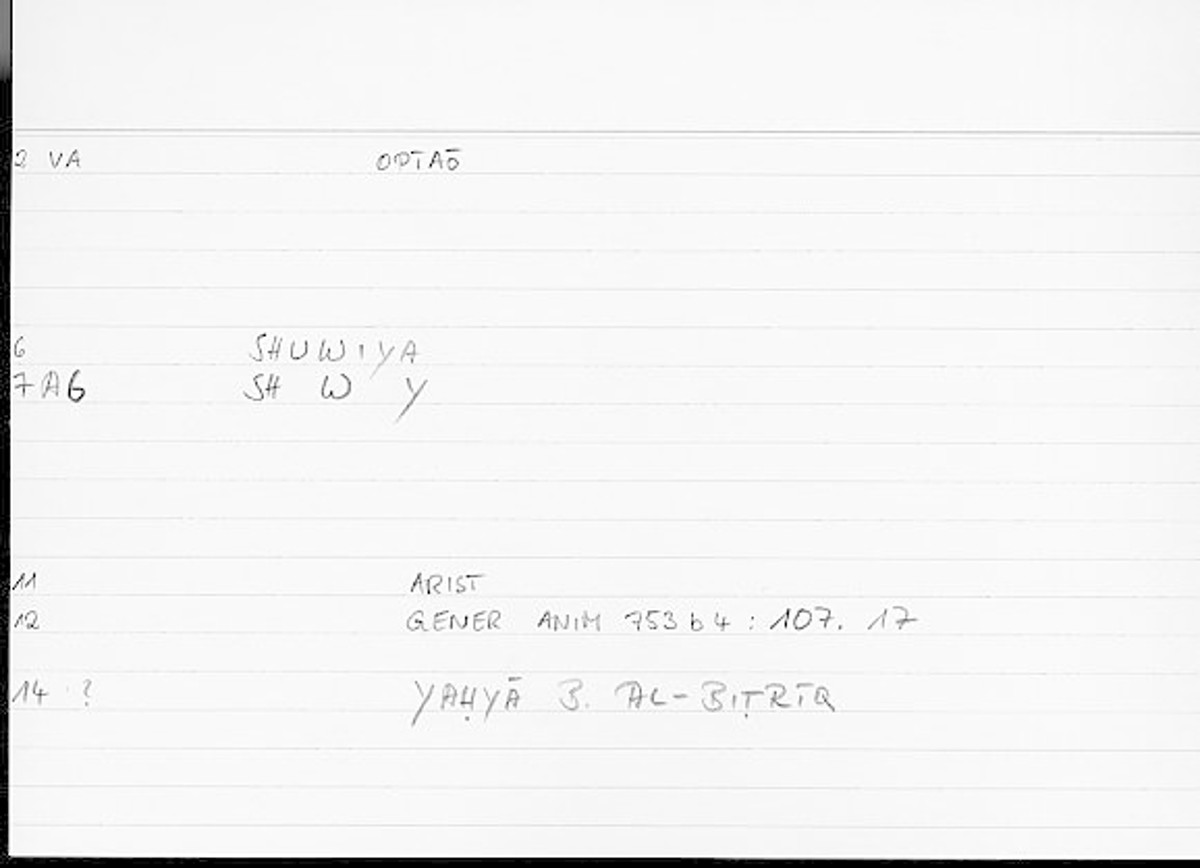 2 VA OPTAŌ
6 SHUWIYA
7 AG SH W Y
11 ARIST
12 GENER ANIM 753 b 4 : 107. 17
14 ? YAḤYĀ B. AL-BIṬRĪQ